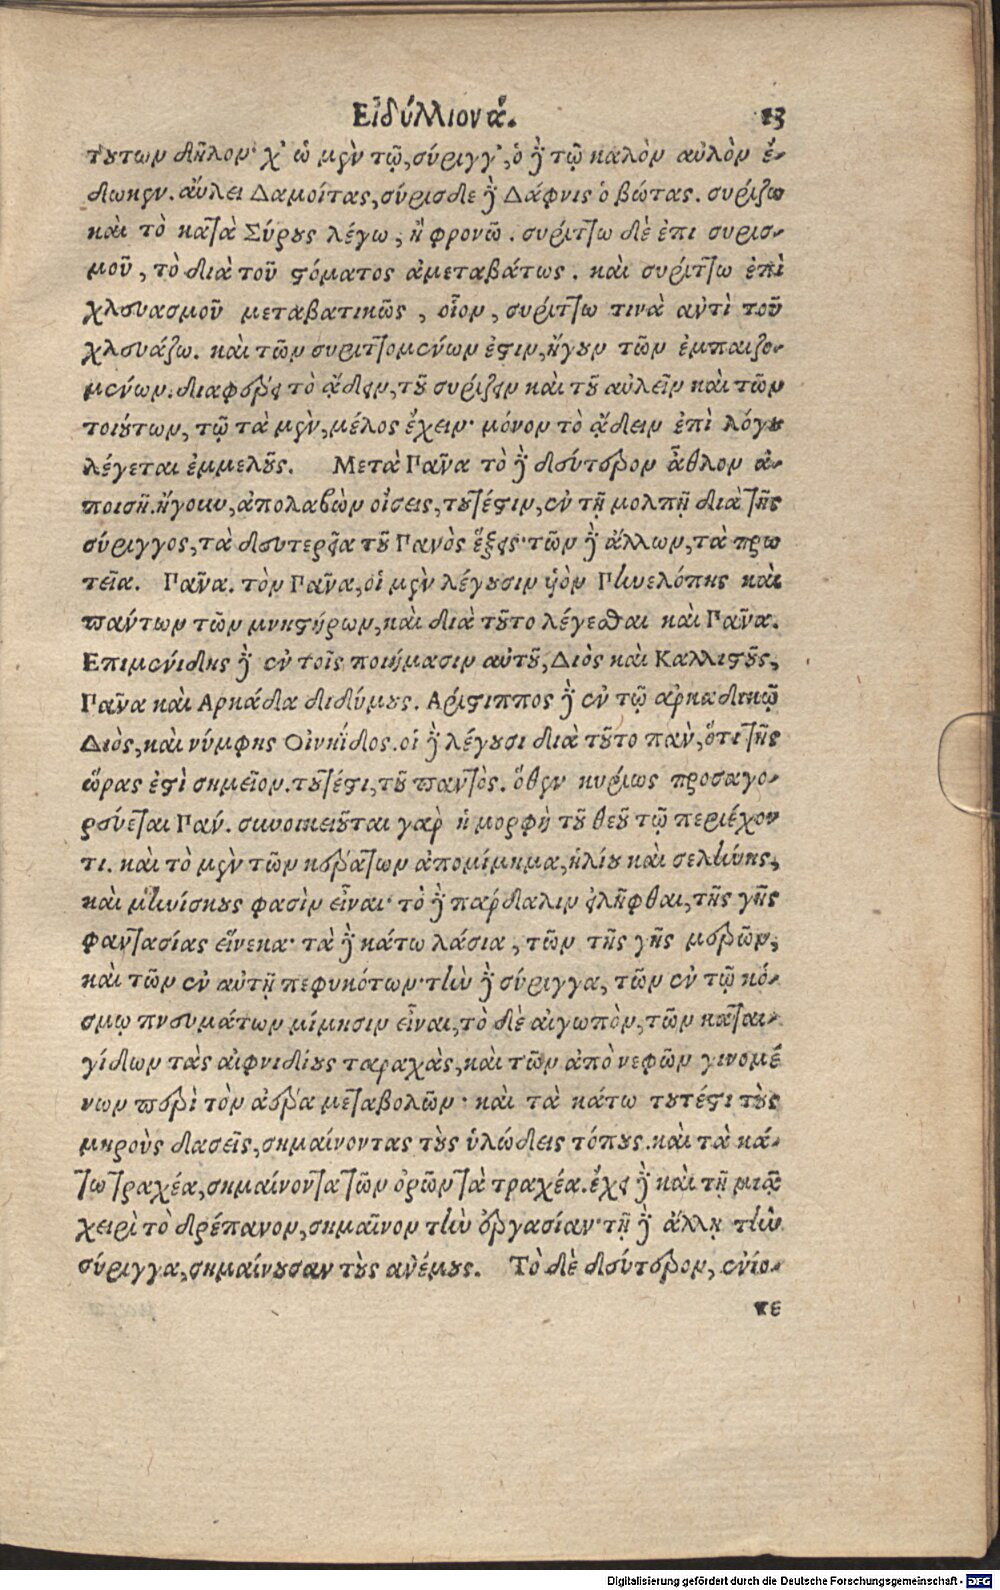 Εἰδύλλιον ά. 13
τȣτων δῆλον· χ' ὡ μὲν τῷ, σύριγγ', ὁ δὲ τῷ καλὸν αὐλὸν ἔ-
δωκεν. αὔλει Δαμοίτας, σύρισδε δὲ Δάφνις ὁ βώτας. συρίζω
καὶ τὸ κατὰ Σύρȣς λέγω, ἢ φρονῶ. συρίττω δὲ ἐπι συρισ-
μοῦ, τὸ διὰ τοῦ στόματος ἀμεταβάτως. καὶ συρίττω ἐπὶ
χλευασμοῦ μεταβατικῶς, οἷον, συρίττω τινὰ αντὶ τοῦ
χλευάζω. καὶ τῶν συριττομένων ἐστιν, ἤγȣν τῶν ἐμπαιζο-
μένων. διαφέρει τὸ ᾄδειν, τȣ͂ συρίζειν καὶ τȣ͂ αὐλεῖν καὶ τῶν
τοιȣ́των, τῷ τὰ μὲν, μέλος ἔχειν· μόνον τὸ ᾄδειν ἐπὶ λόγȣ
λέγεται ἐμμελȣ͂ς. Μετὰ Πᾶνα τὸ δὲ δεύτερον ἆθλον ἀ-
ποισῆ. ἤγουν, ἀπολαβὼν οἴσεις, τȣτέστιν, ἐν τῇ μολπῇ διὰ τῆς
σύριγγος, τὰ δευτερεῖα τȣ͂ Πανὸς ἕξεις· τῶν δὲ ἄλλων, τὰ πρω
τεῖα. Πᾶνα. τὸν Πᾶνα, οἱ μὲν λέγȣσιν ὑὸν Πηνελόπης καὶ
παντων τῶν μνηστήρων, καὶ διὰ τȣ͂το λέγεσθαι καὶ Πᾶνα.
Επιμενίδης δὲ ἐν τοῖς ποιήμασιν αὐτȣ͂, Διὸς καὶ Καλλιστȣ͂ς,
Πᾶνα καὶ Αρκάδα διδύμȣς. Αρίστιππος δὲ ἐν τῷ αρκαδικῷ
Διὸς, καὶ νύμφης Οἰνηΐδος. οἱ δὲ λέγȣσι διὰ τȣ͂το παν, ὅτι τῆς
ὥρας ἐστὶ σημεῖον. τȣτέστι, τȣ͂ παντὸς. ὅθεν κυρίως προσαγο-
ρεύεται Πάν. συνοικειȣ͂ται γὰρ ἡ μορφὴ τȣ͂ θεȣ͂ τῷ περιέχον
τι. καὶ τὸ μὲν τῶν κεράτων ἀπομίμημα, ἡλίȣ καὶ σελήνης,
καὶ μηνίσκȣς φασὶν εἶναι· τὸ δὲ παρδαλιν εἰλῆφθαι, τῆς γῆς
φαντασίας εἵνεκα· τὰ δὲ κάτω λάσια, τῶν τῆς γῆς μερῶν,
καὶ τῶν ἐν αὐτῇ πεφυκότων· τὴν δὲ σύριγγα, τῶν ἐν τῷ κό-
σμῳ πνευμάτων μίμησιν εἶναι, τὸ δὲ αἰγωπὸν, τῶν καται-
γίδων τὰς αἰφνιδίȣς ταραχὰς, καὶ τῶν ἀπὸ νεφῶν γινομέ
νων περὶ τὸν ἀέρα μεταβολῶν· καὶ τὰ κάτω τȣτέστι τȣ̀ς
μηροὺς δασεῖς, σημαίνοντας τȣ̀ς ὑλώδεις τόπȣς. καὶ τὰ κά-
τω τραχέα, σημαίνοντα τῶν ὀρῶν τὰ τραχέα. ἔχει δὲ καὶ τῇ μιᾷ
χειρὶ τὸ δρέπανον, σημαῖνον τὴν ἐργασίαν· τῇ δὲ ἄλλη τὴν
σύριγγα, σημαίνȣσαν τȣ̀ς ανέμȣς. Τὸ δὲ δεύτερον, ἐνίο-
τε
Digitalisierung gefördert durch die Deutsche Forschungsgemeinschaft - DFG